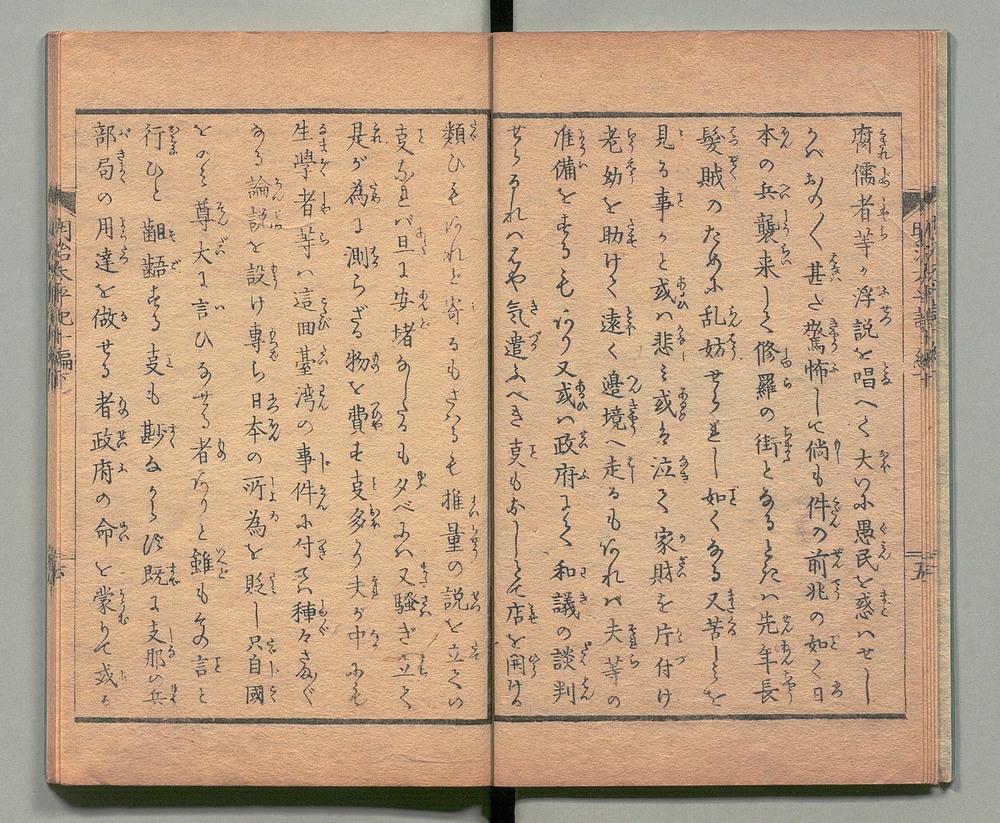 腐儒者等が浮説を唱へて大いに愚民を惑ハせし
甚だ驚怖して倘も件の前兆の如く日
本の兵襲来して修羅の街となるときハ先年長
髪賊のために乱妨せられし如くなる又苦しミを
見る事かと或ハ悲ミ或は泣く家財を片付け
老幼を助けて遠く邉境へ走るもあれバ夫等の
准備をするもあり又或ハ政府にて和議の談判
せらるれバはや気遣ふべき支もなしとて店を開ける
類ひもあれど寄るもさはるも推量の説を立てハ
支なれバ旦に安堵なしたるも夕べにハ又騒ぎ立て
是が為に測らざる物を費す支多かり夫が中にも
生學者等ハ這回臺湾の事件に付てハ種々
なる論説を設け専ら日本の所為を貶し只自國
をのミ尊大に言ひなせる者ありと雖も其言と
行ひと齟齬する支も尠なからず既に支那の兵
部局の用達を做せる者政府の命を蒙りて或る
明治太平記十編下